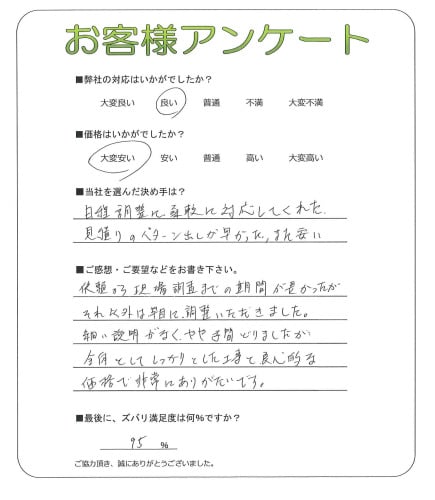 お客様アンケート
■弊社の対応はいかがでしたか？
大変良い 良い 普通 不満 大変不満
■価格はいかがでしたか？
大変安い 安い 普通 高い 大変高い
■当社を選んだ決め手は？
日程調整に柔軟に対応してくれた
見積りのパターン出しが早かった。また安い
■ご感想・ご要望などをお書き下さい。
依頼から現場調査までの期間が長かったが
それ以外は早目に調整いただきました。
細い説明がなく、やや手間どりましたが
全体としてしっかりとした工事と良心的な
価格で非常にありがたいです。
■最後に、ズバリ満足度は何％ですか？
95 ％
ご協力頂き、誠にありがとうございました。